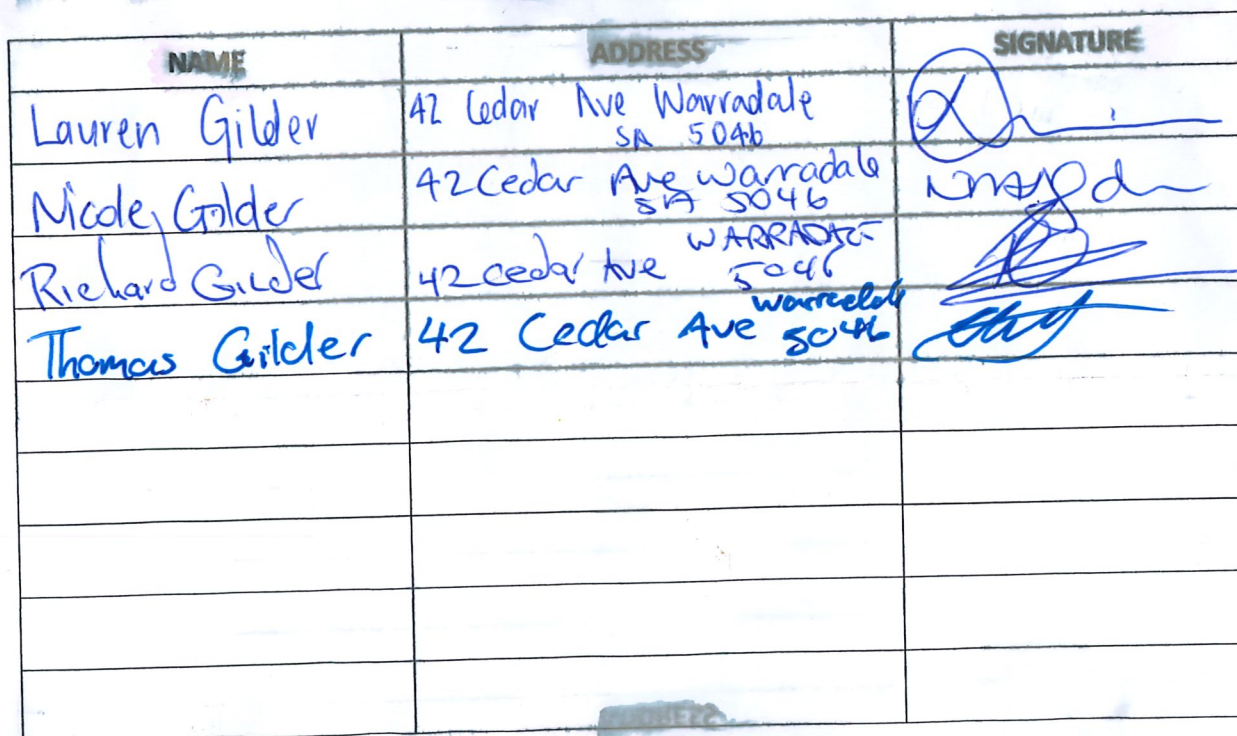 NAME ADDRESS SIGNATURE
Lauren Gilder 42 Cedar Ave Warradale
SA 5046
Nicole Gilder 42 Cedar Ave Warradale
SA 5046
Richard Gilder 42 cedar Ave WARRADALE
5046
Thomas Gilder 42 Cedar Ave Warradale
5046